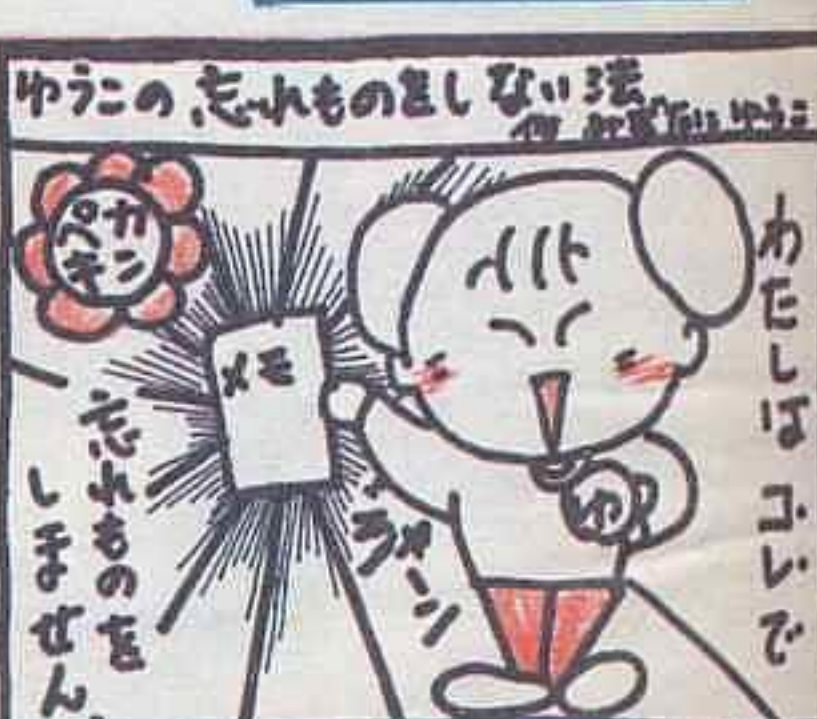 ゆうこの忘れものをしない法
ゆうこ
わたしは コレで
カン
ペキ
メモ
ゆ
ジャーン
忘れものを
しません。